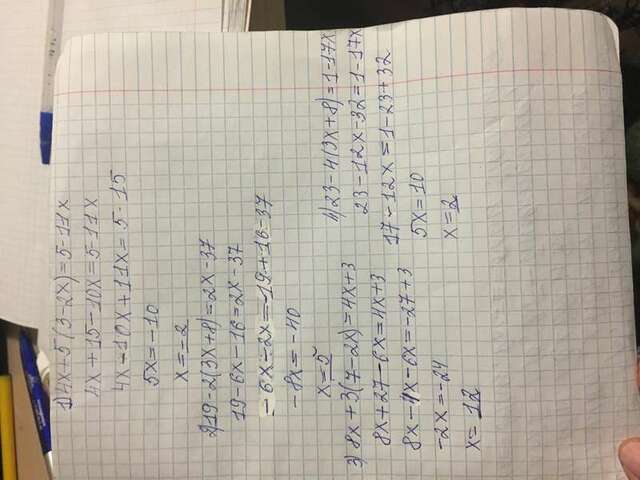 1) 4x+5(3-2x)=5-11x
4x+15-10x=5-11x
4x-10x+11x=5-15
5x=-10
x=-2
2) 19-2(3x+8)=2x-37
19-6x-16=2x-37
-6x-2x=-19+16-37
-8x=-40
x=5
3) 8x+3(7-2x)=4x+3
8x+27-6x=4x+3
8x-4x-6x=-27+3
-2x=-24
x=12
4) 23-4(3x+8)=1-17x
23-12x-32=1-17x
17-12x=1-23+32
5x=10
x=2